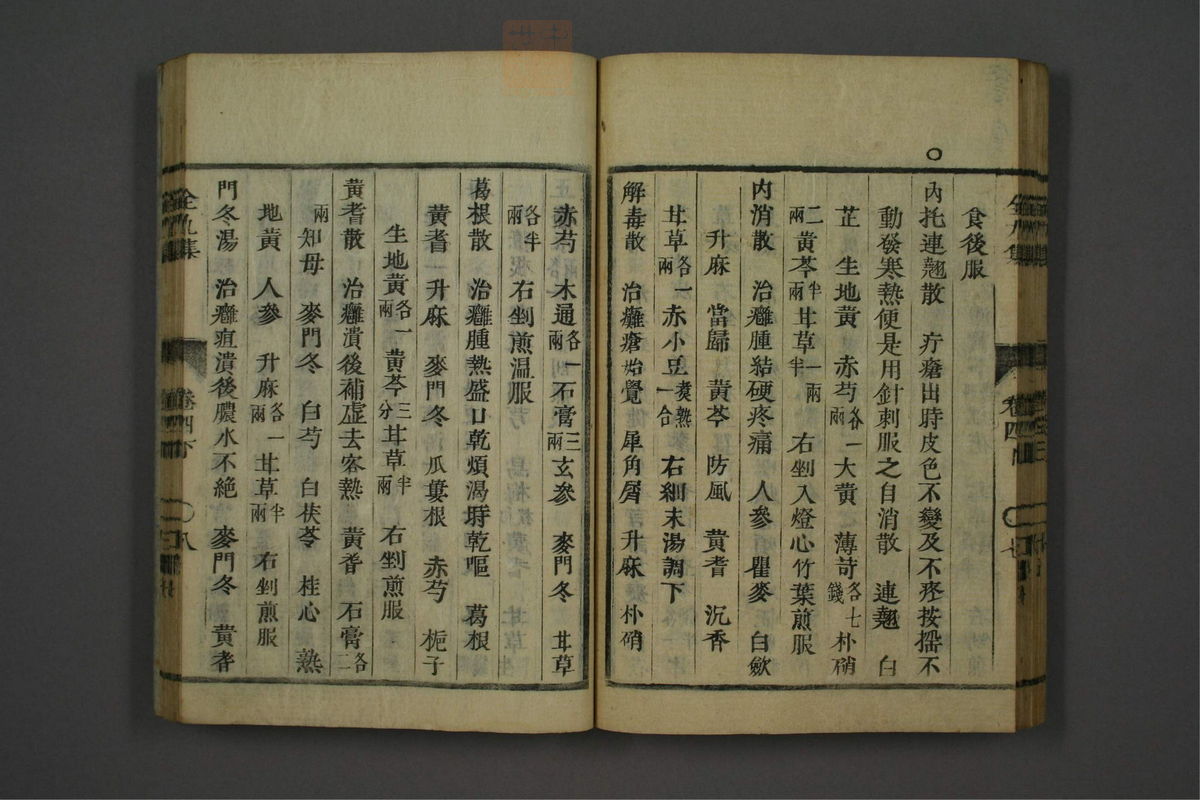 食後服
〇
內托連翹散 疔瘡出時皮色不變及不疼按搖不
動發寒熱便是用針刺服之自消散 連翹 白
芷 生地黃 赤芍各一兩 大黃 薄苛各七錢 朴硝
二兩 黃芩半兩 甘草一兩半 右剉入燈心竹葉煎服
內消散 治癰腫結硬疼痛 人參 瞿麥 白歛
升麻 當歸 黃芩 防風 黃耆 沉香
甘草各一兩 赤小豆煑熟一合 右細末湯調下
解毒散 治癰瘡始覺 犀角屑 升麻 朴硝
赤芍 木通各一兩 石膏三兩 玄參 麥門冬 甘草
各半兩 右剉煎温服
葛根散 治癰腫熱盛口乾煩渴 乾嘔 葛根
黃耆 升麻 麥門冬 瓜蔞根 赤芍 梔子
生地黃各一兩 黃芩三分 甘草半兩 右剉煎服
黃耆散 治癰潰後補虛去客熱 黃耆 石膏各二
兩 知母 麥門冬 白芍 白茯苓 桂心 熟
地黃 人參 升麻各一兩 甘草半兩 右剉煎服
門冬湯 治癰疽潰後膿水不絶 麥門冬 黃耆
卷四下 八